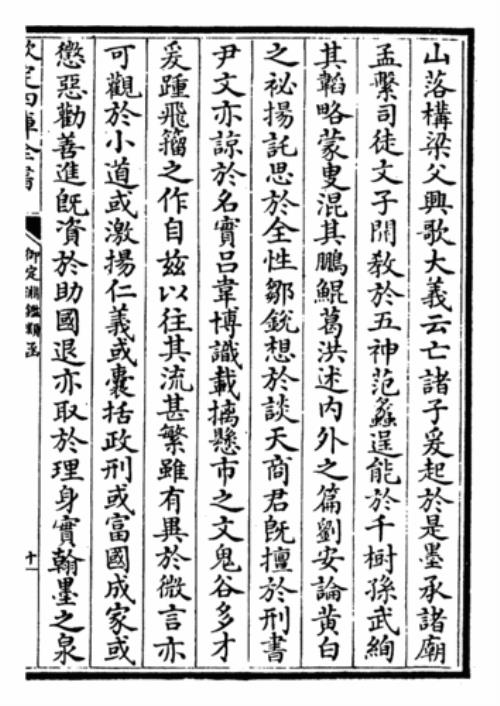 山落構梁父興歌大義云亡諸子爰起於是墨承諸廟
孟繫司徒文子開教於五神范蠡逞能於千樹孫武絢
其韜略蒙叟混其鵬鯤葛洪述内外之篇劉安論黄白
之祕揚託思於全性鄒銳想於談天商君旣擅於刑書
尹文亦諒於名實吕韋博識載摛懸市之文鬼谷多才
爰踵飛籀之作自兹以往其流甚繁雖有異於微言亦
可觀於小道或激揚仁義或囊括政刑或富國成家或
懲惡勸善進旣資於助國退亦取於理身實翰墨之泉
欽定四庫全書
御定淵鑑類函
十